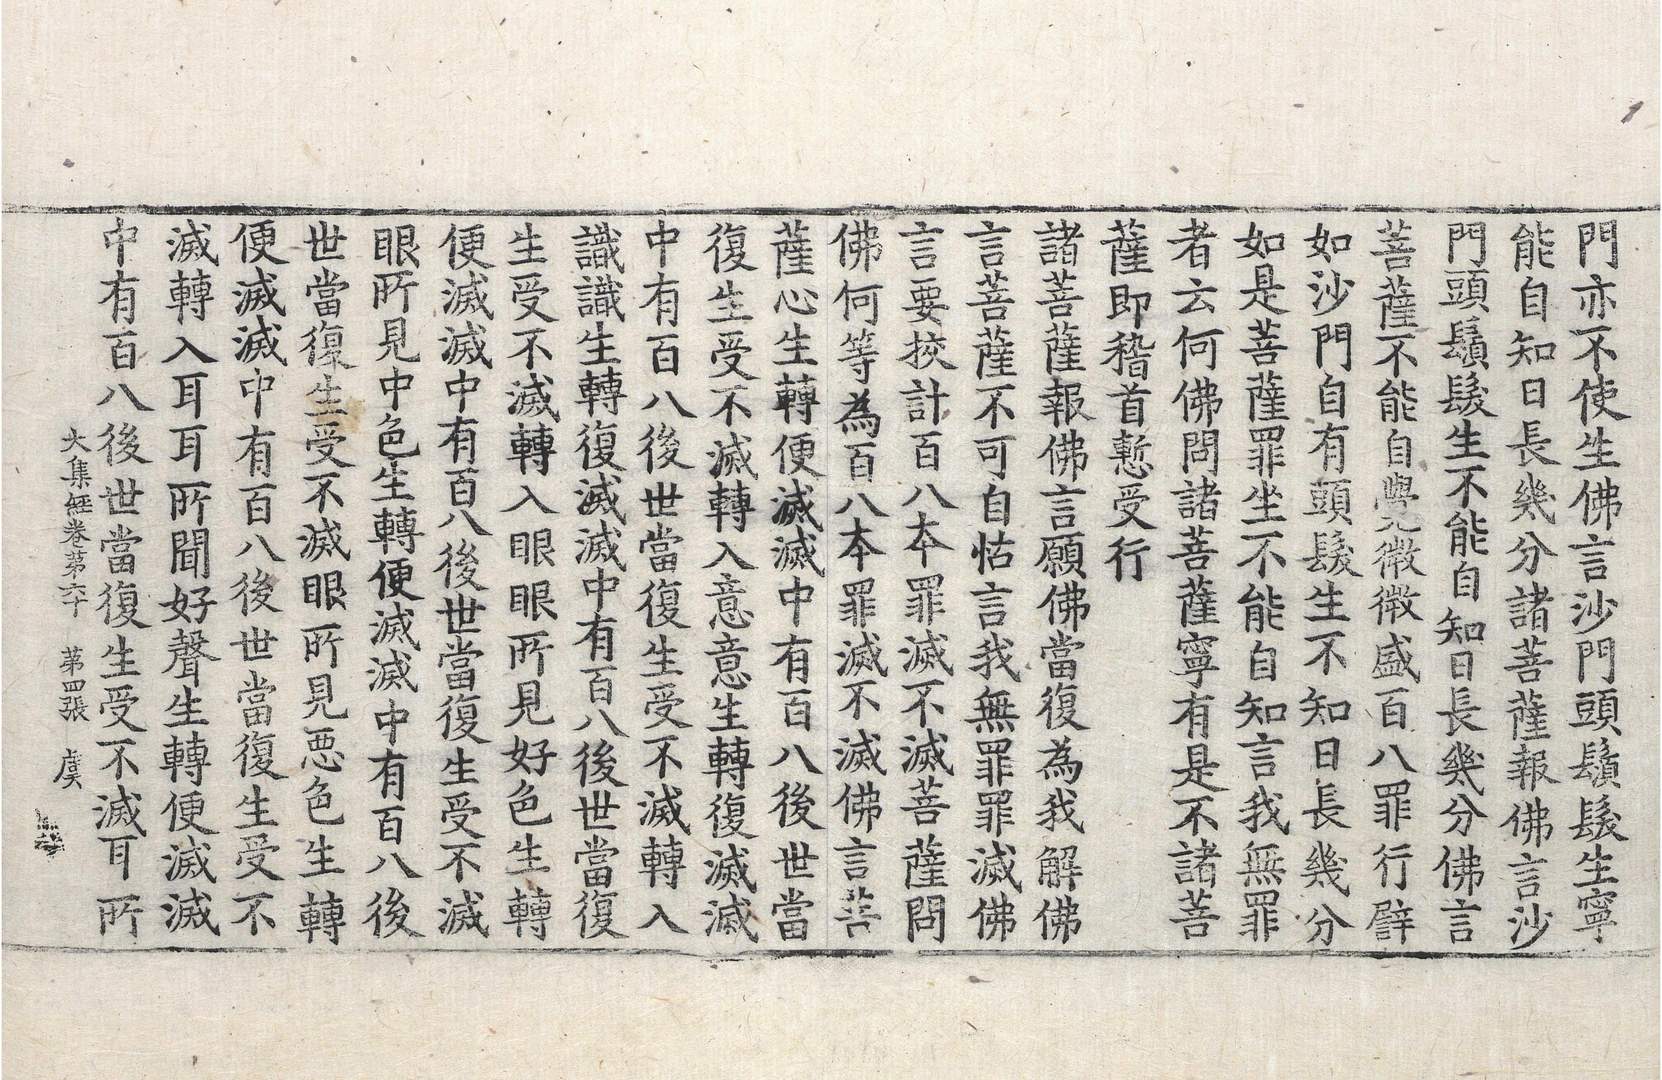 門亦不使生佛言沙門頭鬚髮生寧
能自知日長幾分諸菩薩報佛言沙
門頭鬚髮生不能自知日長幾分佛言
菩薩不能自覺微微盛百八罪行譬
如沙門自有頭髮生不知日長幾分
如是菩薩罪坐不能自知言我無罪
者云何佛問諸菩薩寧有是不諸菩
薩即稽首慙受行
諸菩薩報佛言願佛當復為我解佛
言菩薩不可自怙言我無罪罪滅佛
言要挍計百八本罪滅不滅菩薩問
佛何等為百八本罪滅不滅佛言菩
薩心生轉便滅滅中有百八後世當
復生受不滅轉入意意生轉復滅滅
中有百八後世當復生受不滅轉入
識識生轉復滅滅中有百八後世當復
生受不滅轉入眼眼所見好色生轉
便滅滅中有百八後世當復生受不滅
眼所見中色生轉便滅滅中有百八後
世當復生受不滅眼所見恶色生轉
便滅滅中有百八後世當復生受不
滅轉入耳耳所聞好聲生轉便滅滅
中有百八後世當復生受不滅耳所
大集經卷第六十 第四張 虞